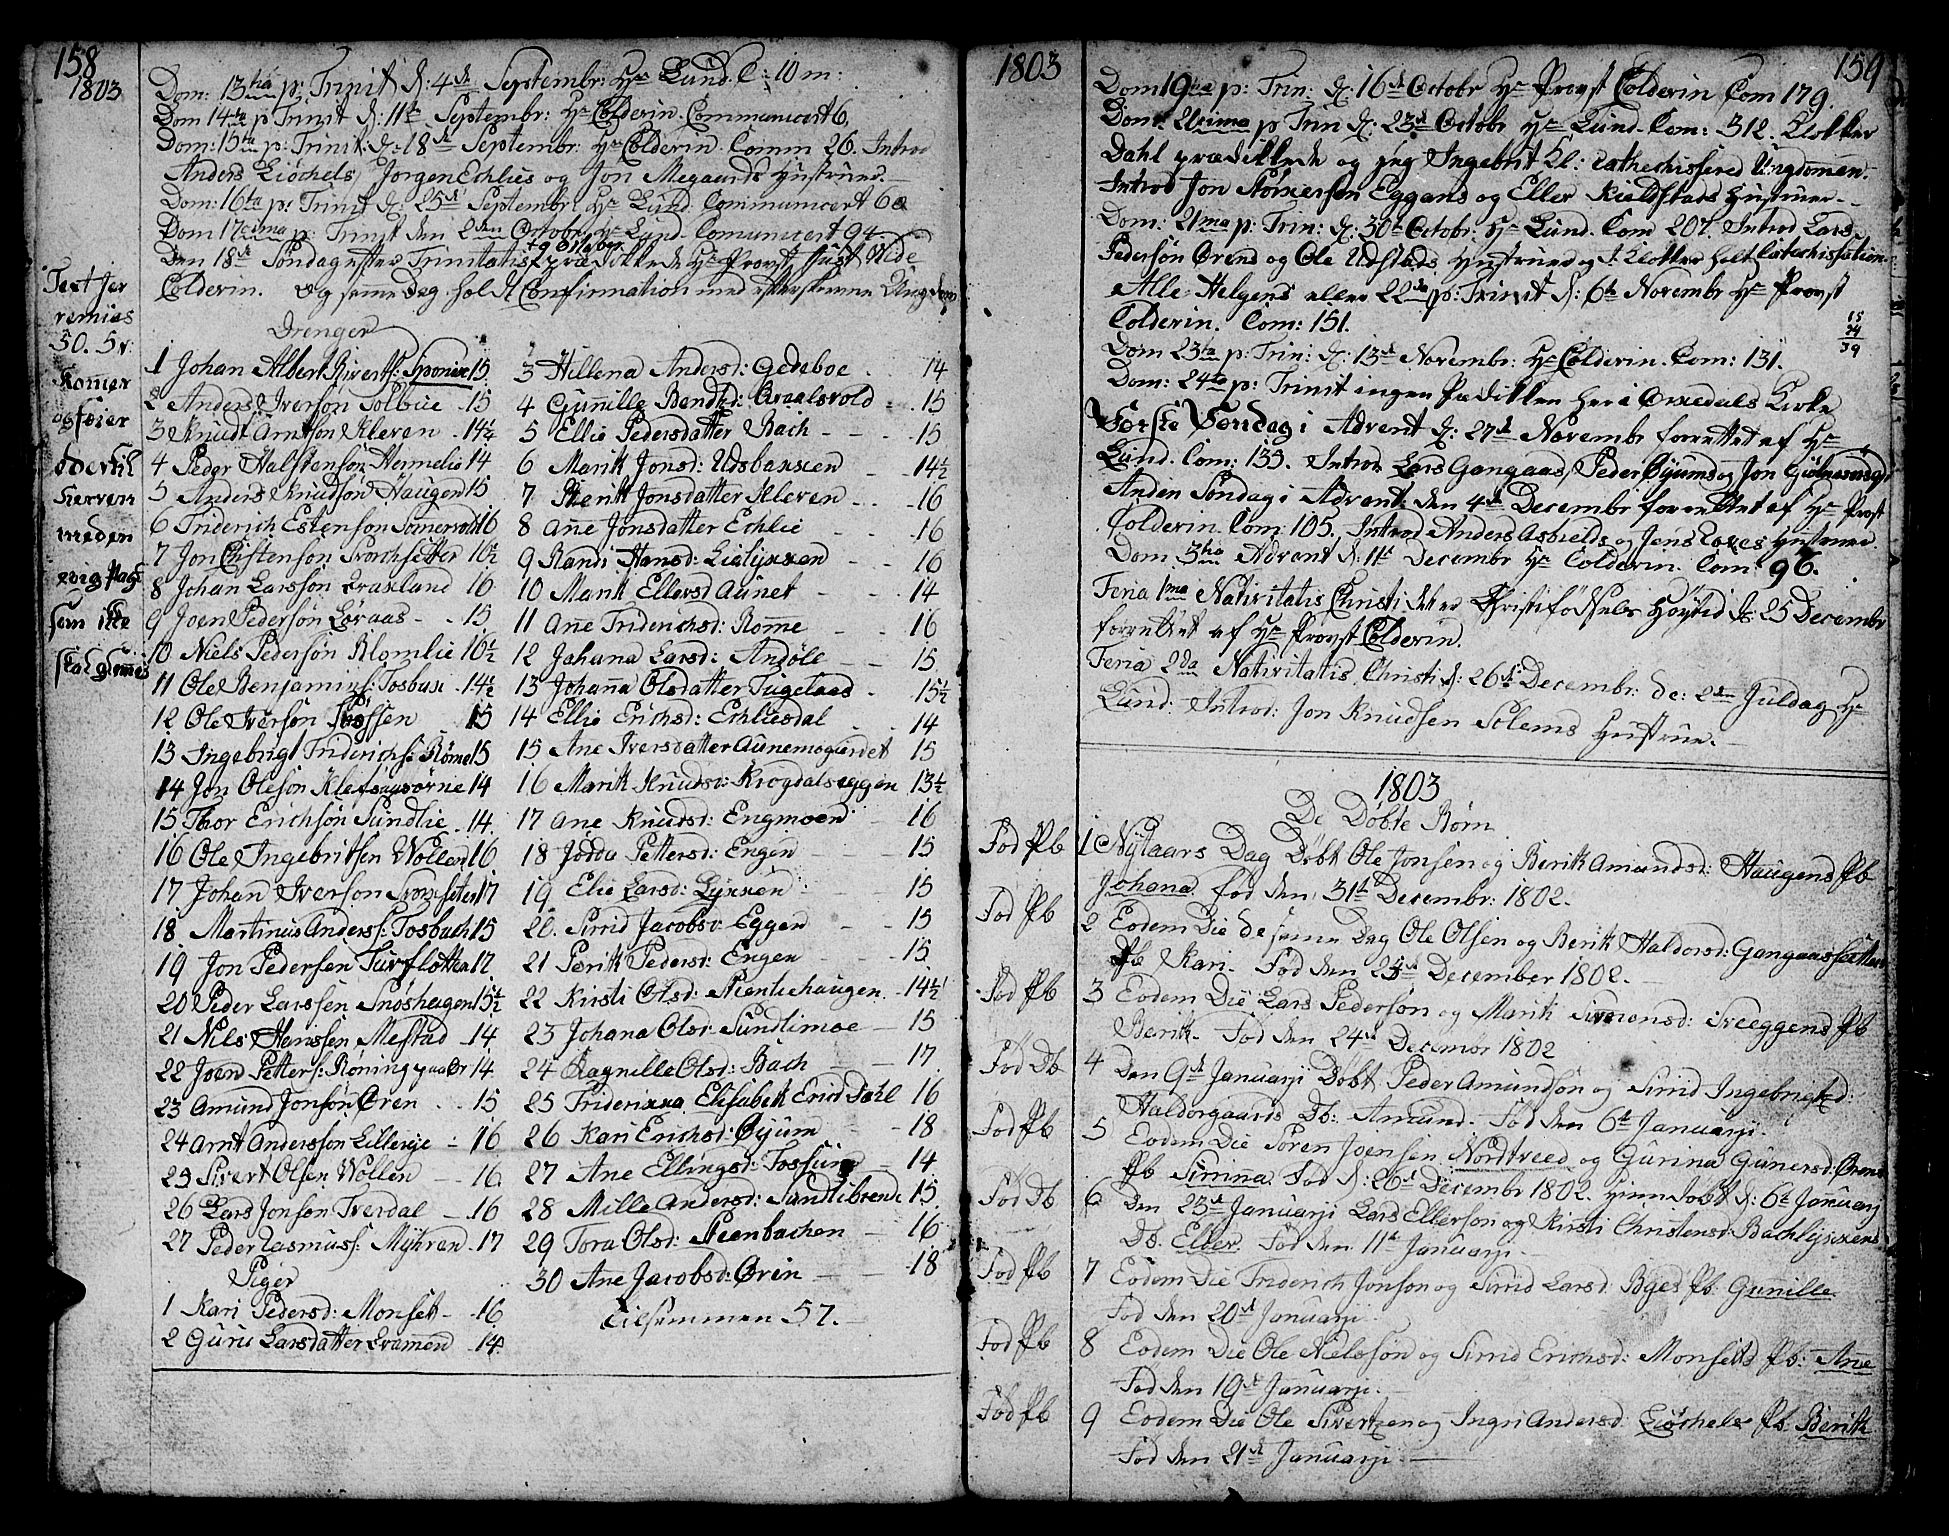 158
1803
Dom: 13tia p: Trinit d: 4de Septembr: Hr Lund. C: 10 m:
Dom 14ta p Trinit d: 11te Septembr: Hr Colderin. Communicert 6.
Dom: 15ta p: Trinit d: 18de Septembr: Hr Colderin. Comm 26. Introd
Anders Liøchels, Jörgen Echlies og Jon Megaards Hustruer
Dom: 16ta p: Trinit d: 25de Septembr: Hr Lund. Communicert 60
Dom 17cima p: Trinit den 2den Octobr: Hr Lund. Comunicert 94
Den 18de Söndag efter Trinitatis d 9 Octobr prædikkede Hr Provst Just Wide
Colderin. og samme Dag holdt Confirmation med efterskrevne Ungdom
Text Jer
remias
50. 5v:
Komer
og føier
eder til
Herren
med en
evig Pagt
som ikke
skal glemmes
Drenger
1 Johan Albert Sivertss: 15
2 Anders Iverson Solbue 15
3 Knudt Arntson Kleven 14½
4 Peder Halstenson Hermelie 14
5 Anders Knudson Haugen 15
6 Friderich Estenson 16
7 Jon Christenson 16½
8 Johan Larsson 16
9 Joen Pederson Løraas 15
10 Niels Pederson Blomlie 16½
11 Ole Benjamins: Fosbue 14½
12 Ole Iverson 15
13 Ingebrigt Friderichs: Rømme 15
14 Jon Oleson 14
15 Thor Erichson Sundlie 14
16 Ole Ingebritsen Wollen 16
17 Johan Iverson 17
18 Martinus Anderss: Fosbach 15
19 Jon Pedersen 17
20 Peder Larssen Snöshagen 15½
21 Nils Henssen Mestad 14
22 Joen Petters: Röning paa Ør 14
23 Amund Jonson Ören 15
24 Arnt Andersson Lillevje 16
25 Sivert Olsen Wollen 16
26 Lars Jonson Tverdal 16
27 Peder Rasmuss: Myhren 17
Piger
1 Kari Pedersd: Monset 16
2 Guru Larsdatter 14
3 Hellena Andersd: Gedeboe 14
4 Gunille Bendtd: 15
5 Ellie Pedersdatter Bach 15
6 Marit Jonsd: Udsbakken 14½
7 Berit Jonsdatter Kleven 16
8 Ane Jonsdatter Echlie 16
9 Randi Hansd: Lielykken 16
10 Marit Ellersd Aunet 14
11 Ane Friderichsd: Romme 16
12 Johana Larsd: Andöle 15
13 Johana Olsdatter Fugelaas 15½
14 Ellie Erichsd: Echliesdal 14
15 Ane Iversdatter Aunemogierdet 15
16 Marit Knudsd: Krogdalseggen 13½
17 Ane Knudsd: Engmoen 16
18 Jødda Pettersd: Engen 15
19 Elie Larsd: Lykken 15
20 Sirrid Jacobsd Eggen 15
21 Berit Pedersd: Engen 15
22 Kirsti Olsd: 14½
23 Johana Olsd: Sundlimoe 15
24 Ragnille Olsd: Bach 17
25 Friderikka Elisabeth Ericd Dahl 16
26 Kari Erichsd: Öyum 18
27 Ane Ellingsd: 14
28 Mille Andersd: Sundlibrende 15
29 Tora Olsd: Steenbachen 16
30 Ane Jacobsd: Ørin 18
Tilsammen 57.
1803
159
Dom 19na p: Trin: d: 16de Octobr Hr Provst Colderin Com 179.
Dom: 20sima p Trin d: 23de Octobr Hr Lund. Com: 312. Klokker
Dahl prædikkede og jeg Ingebrit Kl: Cathechisered Ungdomen.
Introd Jon Størkerson Eggans og Eller Kieldstads Hustruer
Dom: 21ma p: Trin: d: 30te Octobr: Hr Lund. Com 207. Introd Lars
Pederson Ørens og Ole Udstads Hustruer og Klokker holt Catechisation
Alle Helgens eller 22de p: Trinit d: 6te Novembr Hr Provst
Colderin. Com: 151.
15
24
39
Dom 23tia p: Trin: d: 13de Novembr: Hr Colderin. Com: 131.
Dom: 24ta p: Trinit ingen Prædikken her i Orkedals Kirke
Første Søndag i Advent d: 27de Novembr forrettet af Hr
Lund. Com: 135. Introd Lars Gangaas, Peder Øyums og Jon
Anden Søndag i Advent den 4de Decembr forrettet af Hr Provst
Colderin. Com: 105. Introd Anders Asbields og Jens Hustruer
Dom 3tia Advent d: 11te Decembr Hr Colderin. Com: 96.
Feria 1ma Nativitatis Christi det er Christi fødsels Høytid d: 25 Decembr
forrettet af Hr Provst Colderin.
Feria 2da Nativitatis Christi d: 26de Decembr: de: 2den Juldag Hr
Lund. Introd: Jon Knudsen Solems Hustrue.
1803
De Døbte Børn
Fød Pb 1 Nytaars Dag Døbt Ole Jonsen og Berit Amundsd: Haugens Pb
Johana. fød den 31te Decembr: 1802.
Fød Pb 2 Eodem Die de samme Dag Ole Olsen og Berit Haldorsd: Gangaassetter
Pb Kari. Fød den 25de December 1802.
Fød Pb 3 Eodem Die Lars Pederson og Marit Simensd: Pb
Berit. Fød den 24de Decembr 1802
Fød Db 4 Den 9de Januarji Døbt Peder Amundson og Sirrid Ingebrigtd:
Haldorgaards Db: Amund. Fød den 6te Januarji.
Fød Pb 5 Eodem Die Sören Joensen Nordtreed og Gurina Gunersd: Ørens
Pb Sirrina. Fød d: 26de Decembr 1802. Hiem døbt d: 6te Januarj
Fød Db 6 Den 23de Januarji Lars Ellerson og Kirsti Christensd: Bachlykkens
Db. Eller. Fød den 11te Januarji
Fød Pb 7 Eodem Die Friderich Jonson og Sirrid Larsd Byes Pb. Gunille
Fød den 20de Januarji
Fød Pb 8 Eodem Die Ole Nielsson og Sirrid Erichsd: Monsets Pb: Ane
Fød den 19de Januarji.
Fød Pb 9 Eodem Die Ole Sivertzen og Ingri Andersd: Liøchels Pb. Berit
Fød den 21de Januarji